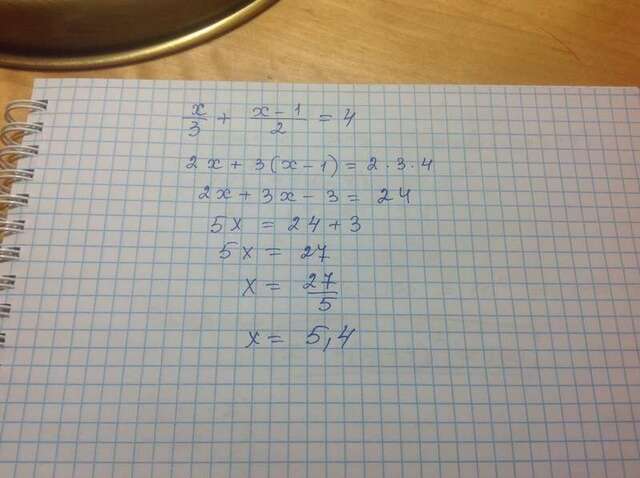 x/3 + x-1/2 = 4
2x + 3(x-1) = 2·3·4
2x + 3x - 3 = 24
5x = 24 + 3
5x = 27
x = 27/5
x = 5,4